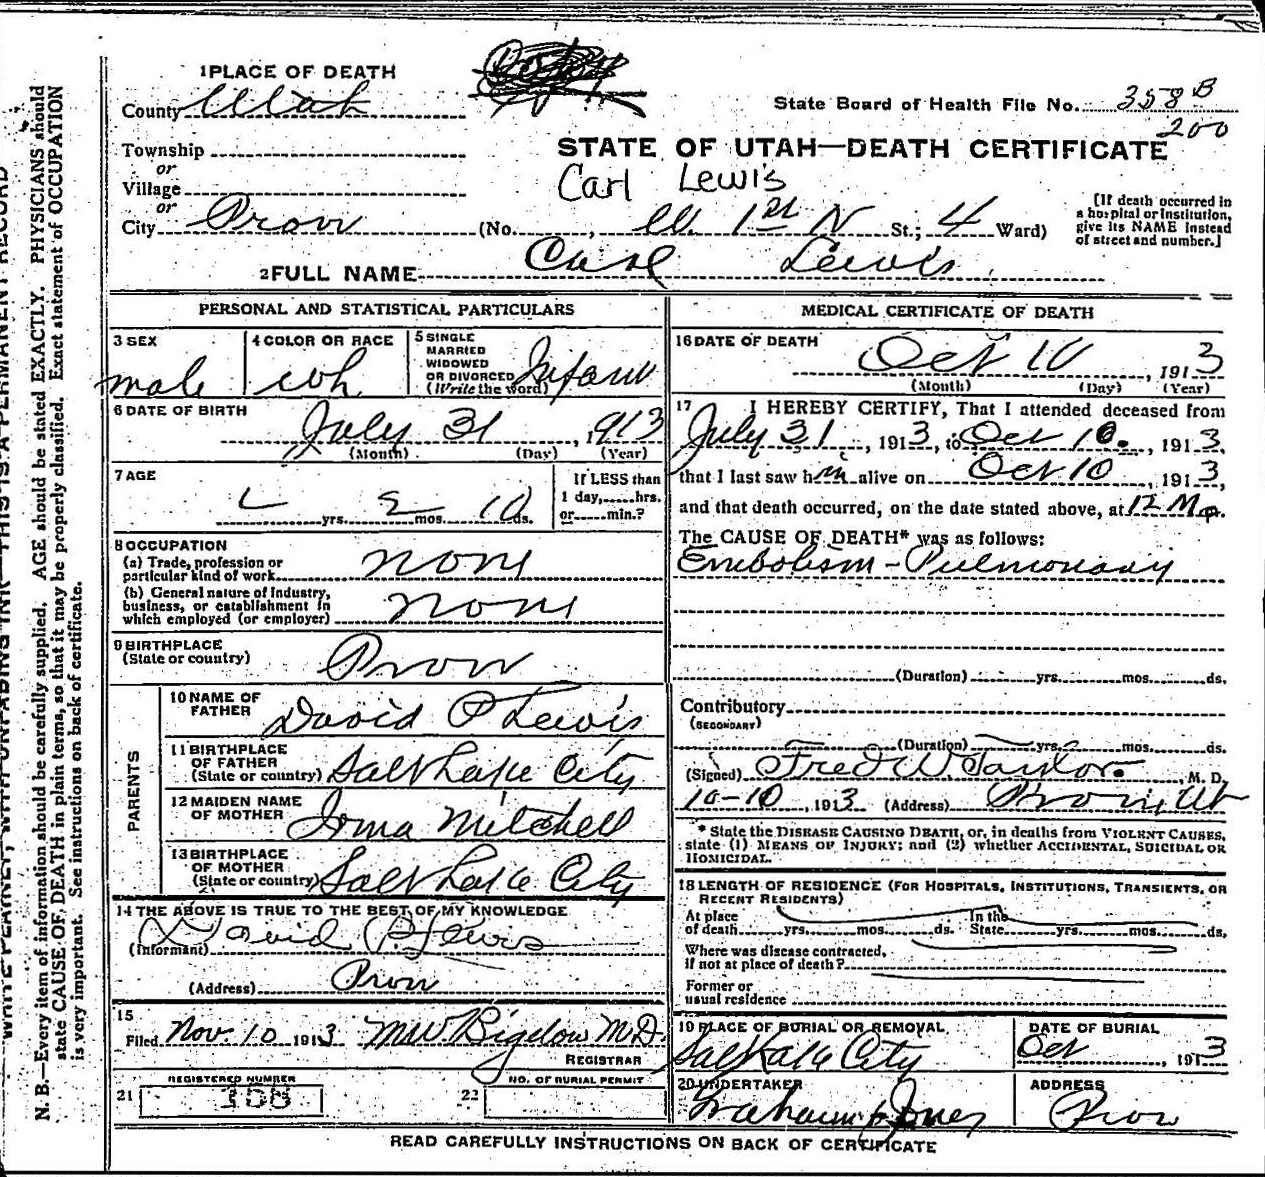 1 PLACE OF DEATH
County Utah
State Board of Health File No. 358 B
200
Township
or
Village
or
STATE OF UTAH—DEATH CERTIFICATE
Carl Lewis
City Provo (No. , W. 1st N St.; 4 Ward)
[If death occurred in
a hospital or institution,
give its NAME instead
of street and number.]
2 FULL NAME Carl Lewis
PERSONAL AND STATISTICAL PARTICULARS
3 SEX
male
4 COLOR OR RACE
wh.
5 SINGLE
MARRIED
WIDOWED
OR DIVORCED
(Write the word)
Infant
6 DATE OF BIRTH
July 31, 1913
(Month) (Day) (Year)
7 AGE
yrs. 2 mos. 10 ds.
If LESS than
1 day, hrs.
or min.?
8 OCCUPATION
(a) Trade, profession or
particular kind of work none
(b) General nature of Industry,
business, or establishment in
which employed (or employer) none
9 BIRTHPLACE
(State or country) Provo
PARENTS
10 NAME OF
FATHER David P Lewis
11 BIRTHPLACE
OF FATHER
(State or country) Salt Lake City
12 MAIDEN NAME
OF MOTHER Irma Mitchell
13 BIRTHPLACE
OF MOTHER
(State or country) Salt Lake City
14 THE ABOVE IS TRUE TO THE BEST OF MY KNOWLEDGE
(Informant) David P. Lewis
(Address) Provo
15
Filed Nov. 10 1913 MW. Bigelow M.D.
REGISTRAR
21 REGISTERED NUMBER
158
22 NO. OF BURIAL PERMIT
MEDICAL CERTIFICATE OF DEATH
16 DATE OF DEATH
Oct 10, 1913
(Month) (Day) (Year)
17 I HEREBY CERTIFY, That I attended deceased from
July 31, 1913, to Oct 10., 1913,
that I last saw him alive on Oct 10, 1913,
and that death occurred, on the date stated above, at 12 M.
The CAUSE OF DEATH* was as follows:
Embolism - Pulmonary
(Duration) yrs. mos. ds.
Contributory
(SECONDARY)
(Duration) yrs. mos. ds.
(Signed) Fred W. Taylor., M. D.
10-10, 1913 (Address) Provo Ut
* State the DISEASE CAUSING DEATH, or, in deaths from VIOLENT CAUSES,
state (1) MEANS OF INJURY; and (2) whether ACCIDENTAL, SUICIDAL OR
HOMICIDAL.
18 LENGTH OF RESIDENCE (FOR HOSPITALS, INSTITUTIONS, TRANSIENTS, OR
RECENT RESIDENTS)
At place
of death yrs. mos. ds. In the
State yrs. mos. ds.
Where was disease contracted,
if not at place of death?
Former or
usual residence
19 PLACE OF BURIAL OR REMOVAL
Salt Lake City
DATE OF BURIAL
Oct, 1913
20 UNDERTAKER
Jones
ADDRESS
Provo
READ CAREFULLY INSTRUCTIONS ON BACK OF CERTIFICATE
N. B.—Every item of information should be carefully supplied. AGE should be stated EXACTLY. PHYSICIANS should
state CAUSE OF DEATH in plain terms, so that it may be properly classified. Exact statement of OCCUPATION
is very important. See instructions on back of certificate.